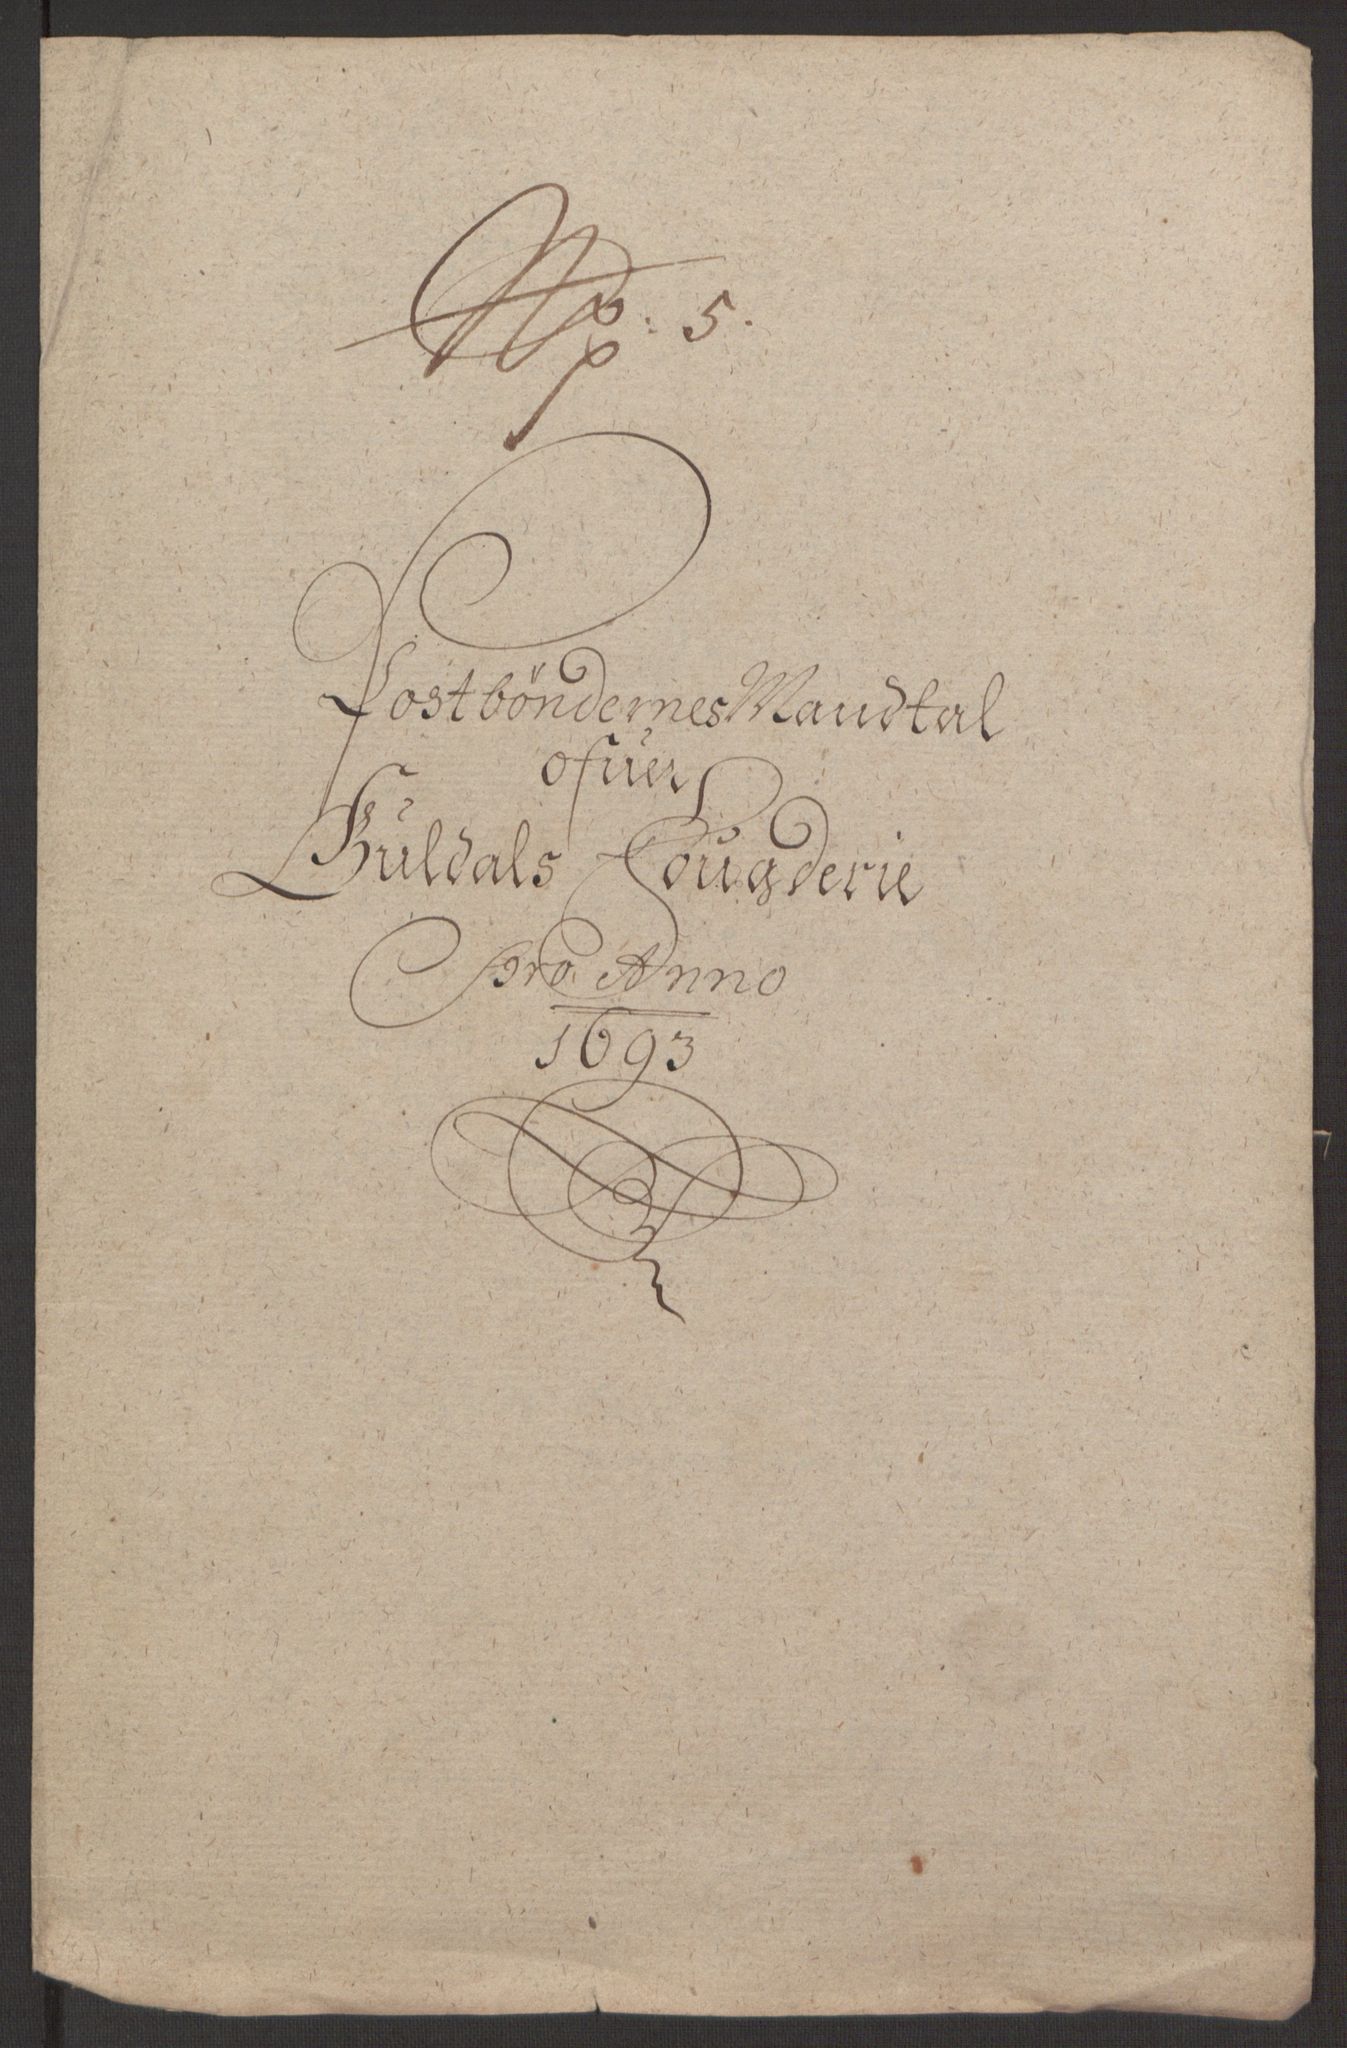 Np: 5.
Postböndernes Mandtal
ofuer
Guldals Fougderie
Pro Anno
1693